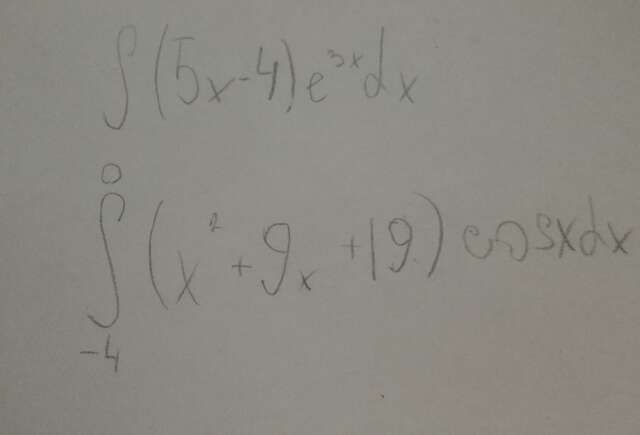 ∫(5x-4)e³ˣdx
⁰∫₋₄ (x²+9x+19)cosxdx